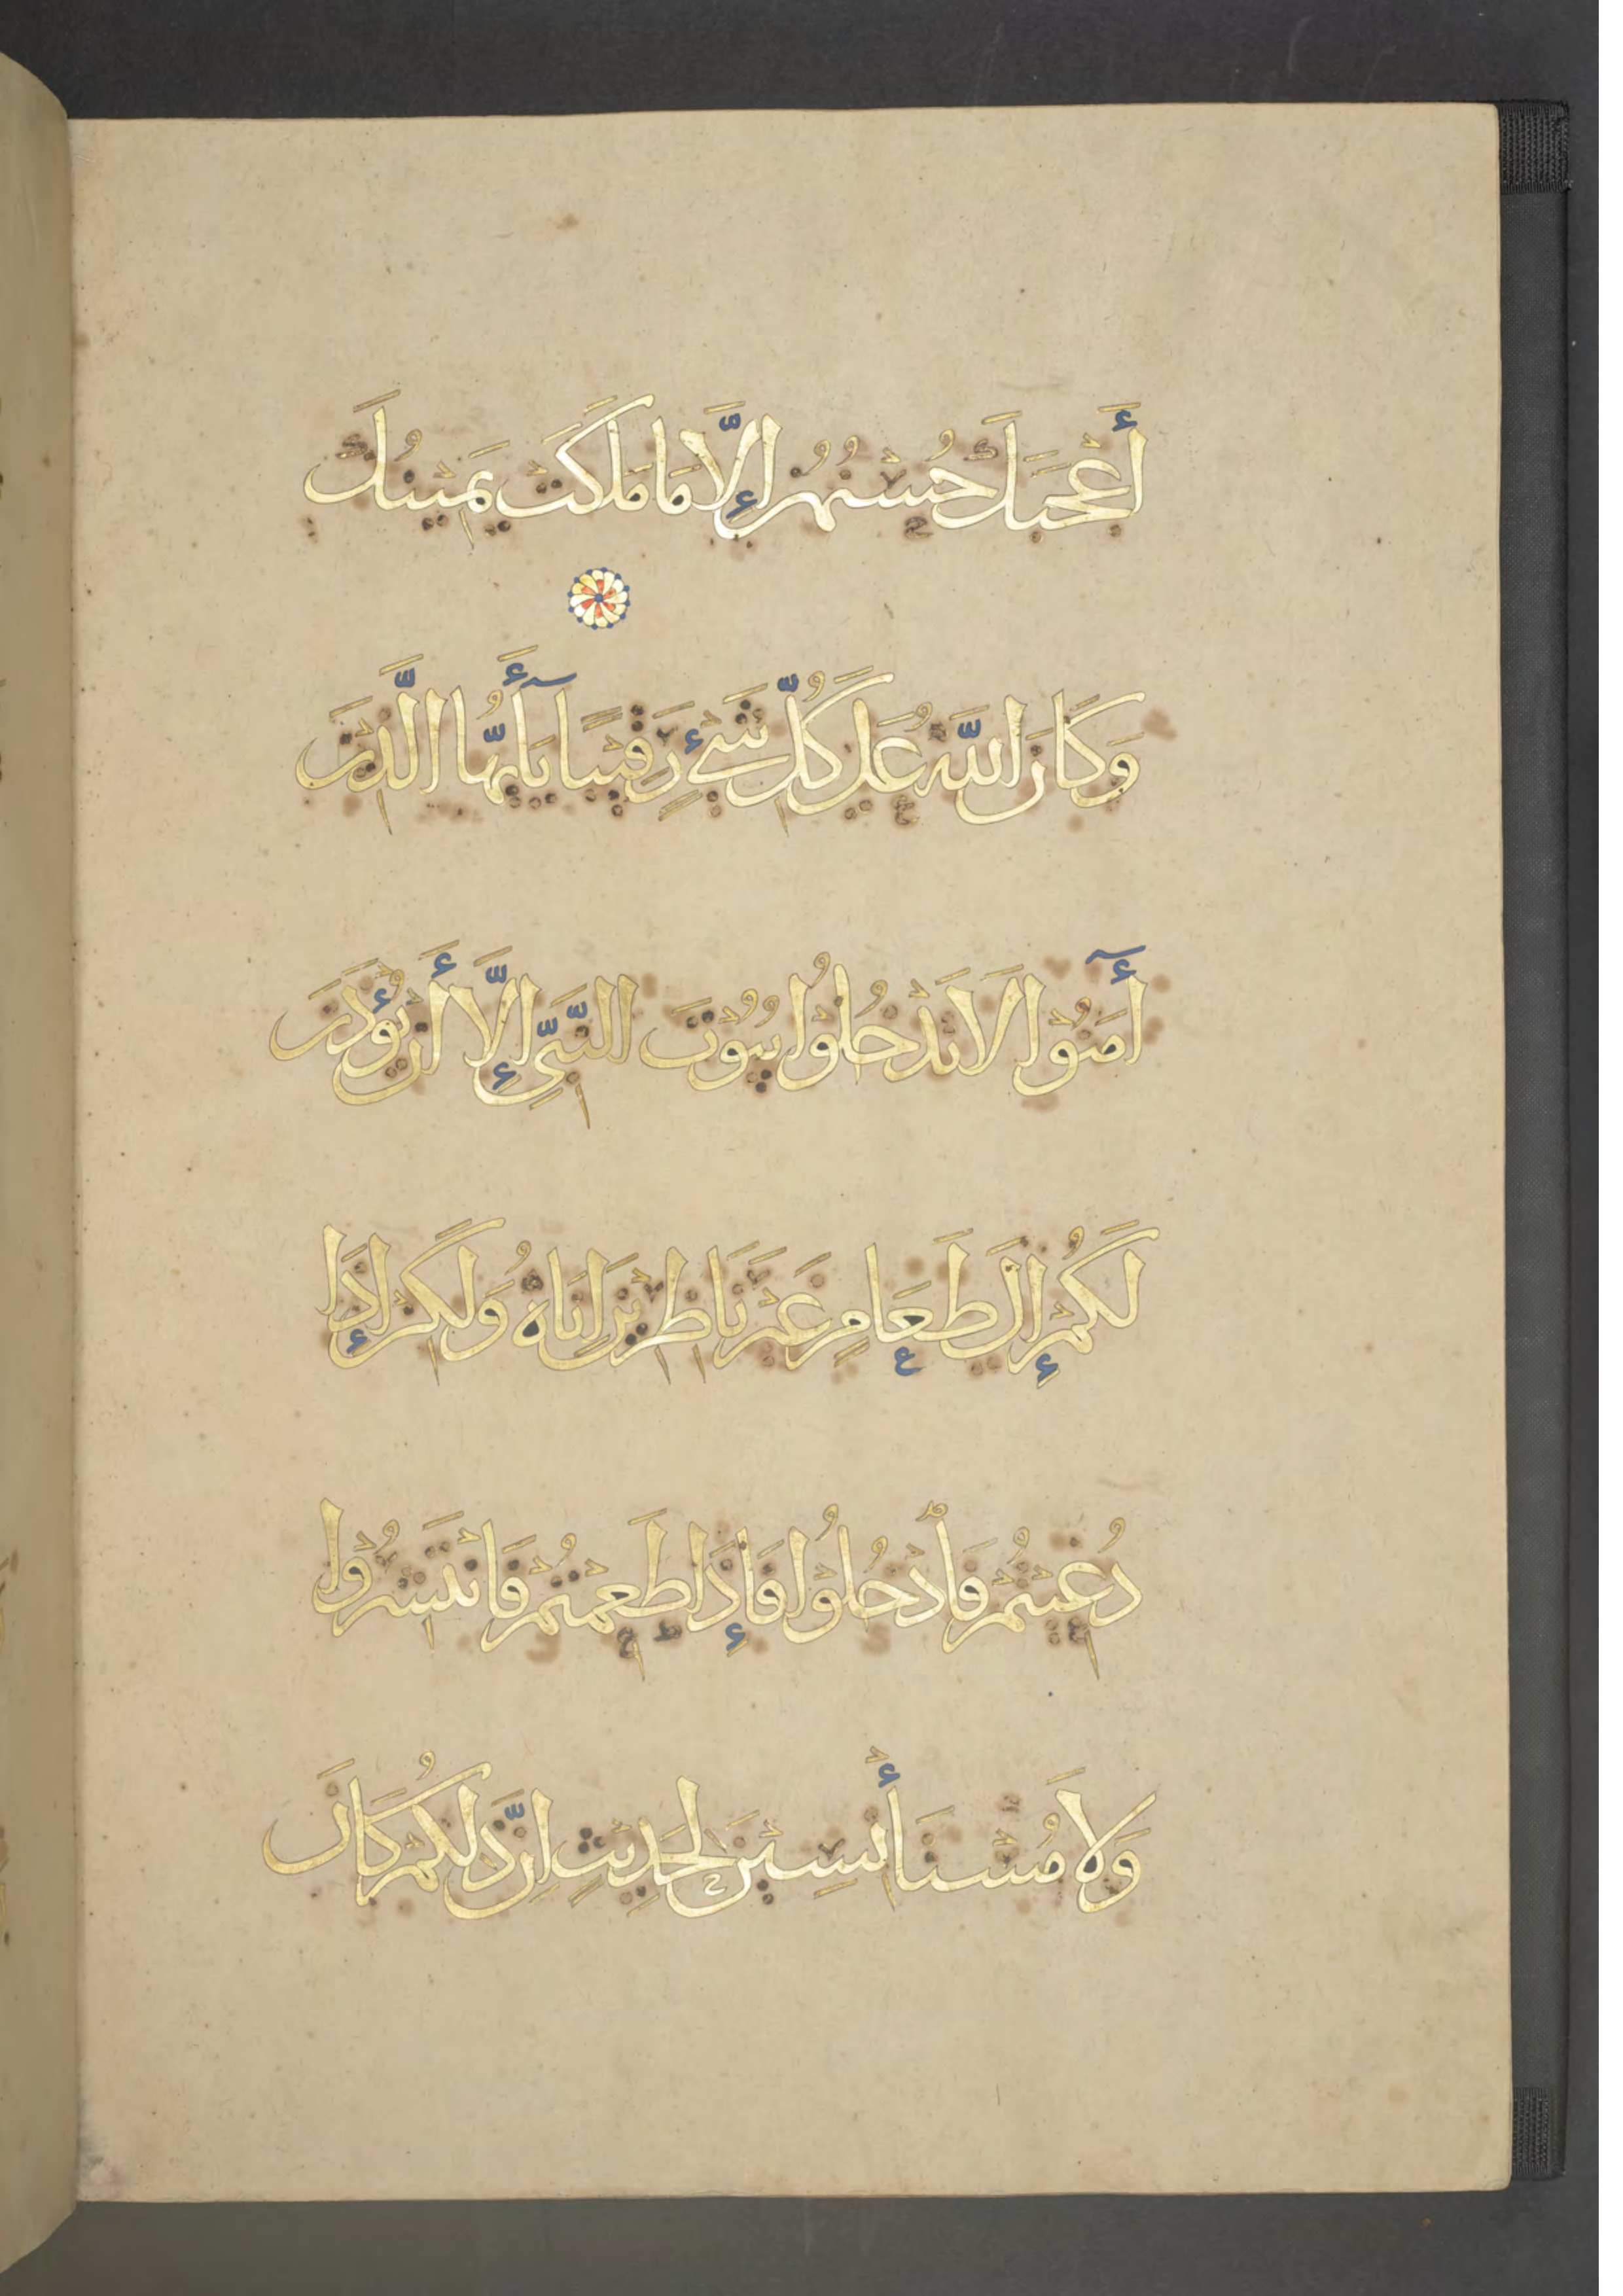 أَعْجَبَكَ حُسْنُهُنَّ إِلَّا مَا مَلَكَتْ يَمِينُكَ
وَكَانَ اللَّهُ عَلَى كُلِّ شَيْءٍ رَقِيبًا يَآأَيُّهَا الَّذِينَ
أٓمَنُوا لَا تَدْخُلُوا بُيُوتَ النَّبِيِّ إِلَّا أَنْ يُؤْذَنَ
لَكُمْ إِلَى طَعَامٍ غَيْرَ نَاظِرِينَ إِنَاهُ وَلَكِنْ إِذَا
دُعِيتُمْ فَادْخُلُوا فَإِذَا طَعِمْتُمْ فَانْتَشِرُوا
وَلَا مُسْتَأْنِسِينَ لِحَدِيثٍ إِنَّ ذَلِكُمْ كَانَ